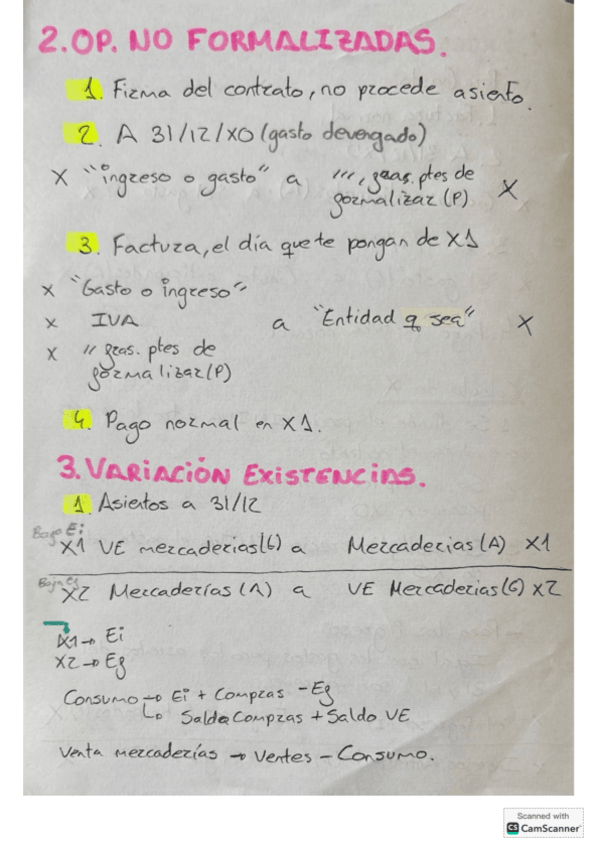 2. OP. NO FORMALIZADAS.
1. Firma del contrato, no procede asiento.
2. A 31/12/X0 (gasto devengado)
X "ingreso o gasto" a "", gras. ptes de X
formalizar (P)
3. Factura, el día que te pongan de X1
X "Gasto o ingreso"
X IVA a "Entidad q sea" X
X " gras. ptes de
formalizar (P)
4. Pago normal en X1.
3. VARIACIÓN EXISTENCIAS.
1. Asientos a 31/12
Ei
X1 VE mercaderias (G) a Mercaderias (A) X1
X2 Mercaderías (A) a VE Mercaderias (G) X2
X1 → Ei
X2 → Eg
Consumo → Ei + Compras - Eg
↳ Saldo Compras + Saldo VE
Venta mercaderías → Ventes - Consumo.
Scanned with
CS CamScanner